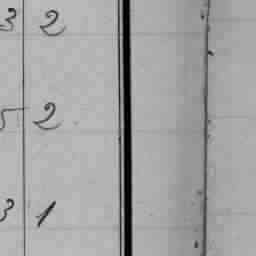 3 2
5 2
3 1